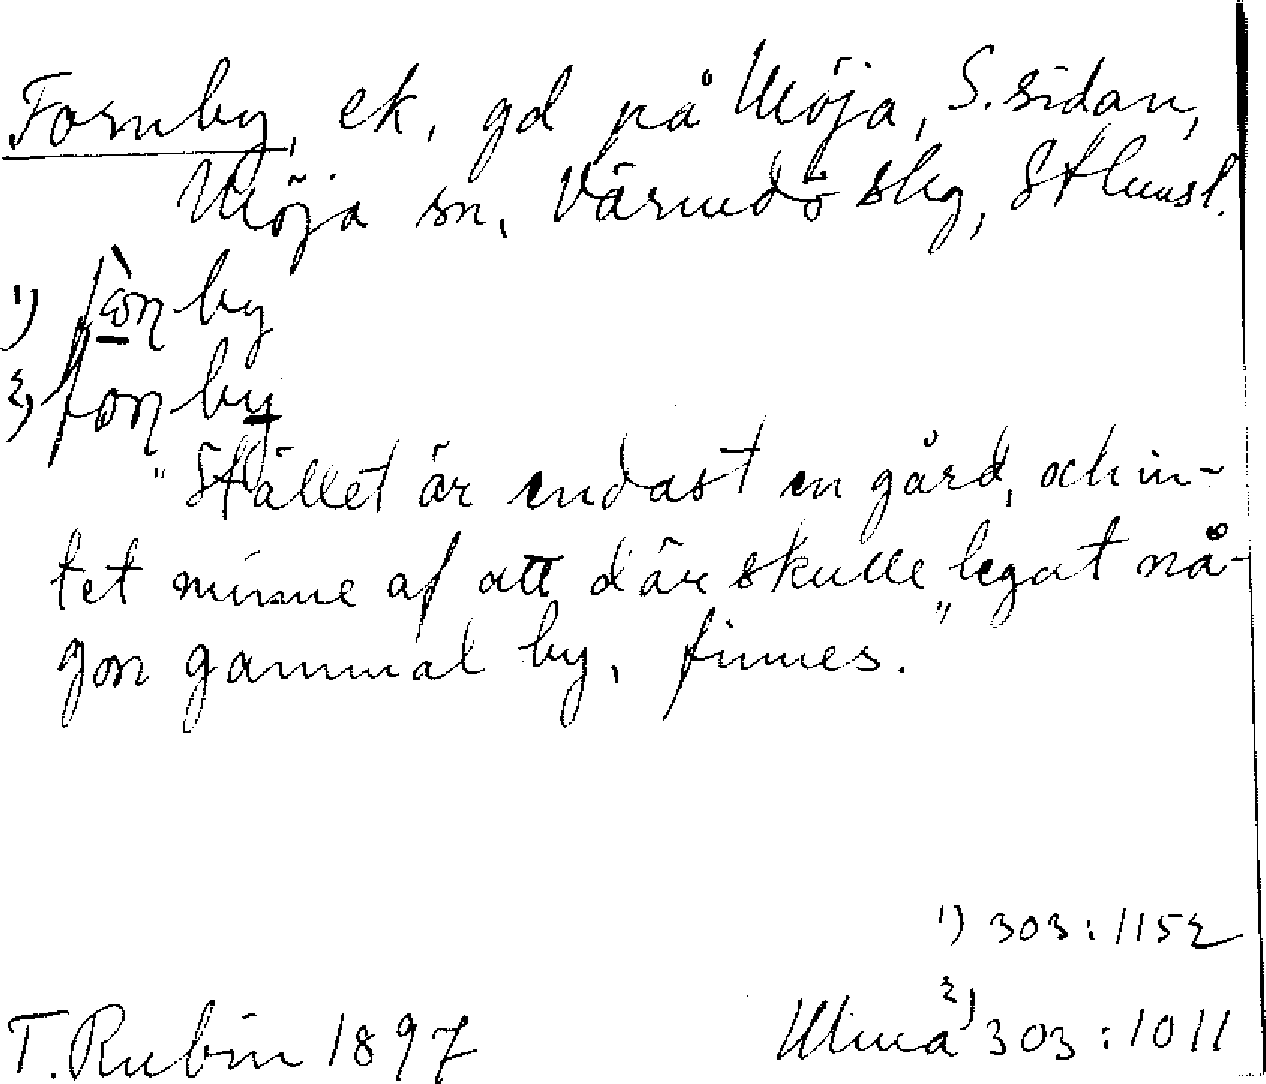 Fornby, ek, gd på Möja, S. sidan,
Möja sn, Värmdö skg, Sthmsl.
1) fò̱ɳby
2) foɳby
"Stället är endast en gård, och in-
tet minne af att där skulle legat nå-
gon gammal by, finnes."
1) 303:1152
T. Rubin 1897 Ulma 2) 303:1011